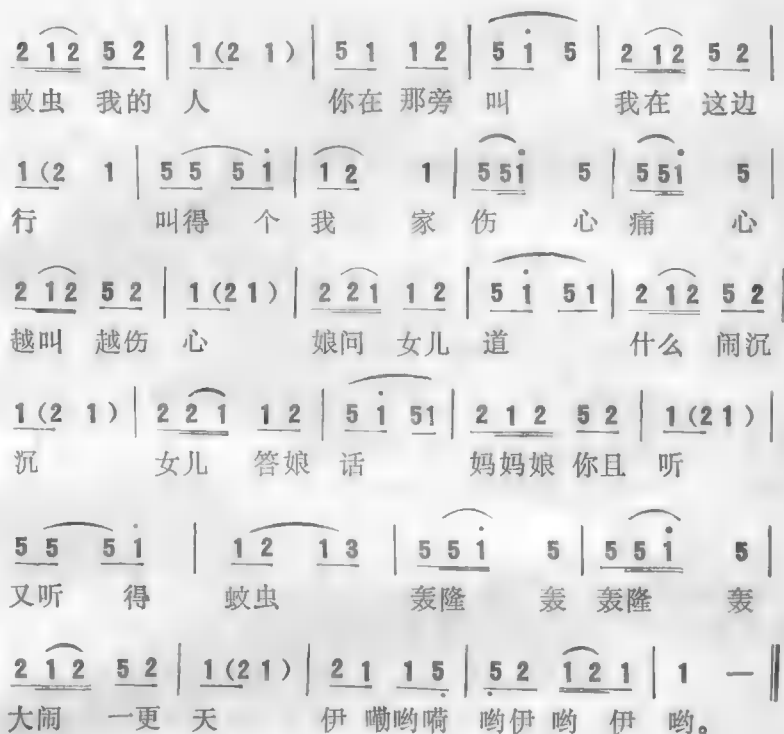 2 1 2 5 2 | 1 (2 1) | 5 1 1 2 | 5 i 5 | 2 1 2 5 2 |
蚊虫 我的 人 你在 那旁 叫 我在 这边
1 (2 1 | 5 5 5 i | 1 2 1 | 5 5 i 5 | 5 5 i 5 |
行 叫得 个 我 家 伤 心 痛 心
2 1 2 5 2 | 1 (2 1) | 2 2 1 1 2 | 5 i 5 1 | 2 1 2 5 2 |
越叫 越伤 心 娘问 女儿 道 什么 闹沉
1 (2 1) | 2 2 1 1 2 | 5 i 5 1 | 2 1 2 5 2 | 1 (2 1) |
沉 女儿 答娘 话 妈妈娘 你且 听
5 5 5 i | 1 2 1 3 | 5 5 i 5 | 5 5 i 5 |
又听 得 蚊虫 轰隆 轰 轰隆 轰
2 1 2 5 2 | 1 (2 1) | 2 1 1 5 | 5 2 1 2 1 | 1 — ‖
大闹 一更 天 伊 嘞哟嗬 哟伊 哟 伊 哟。